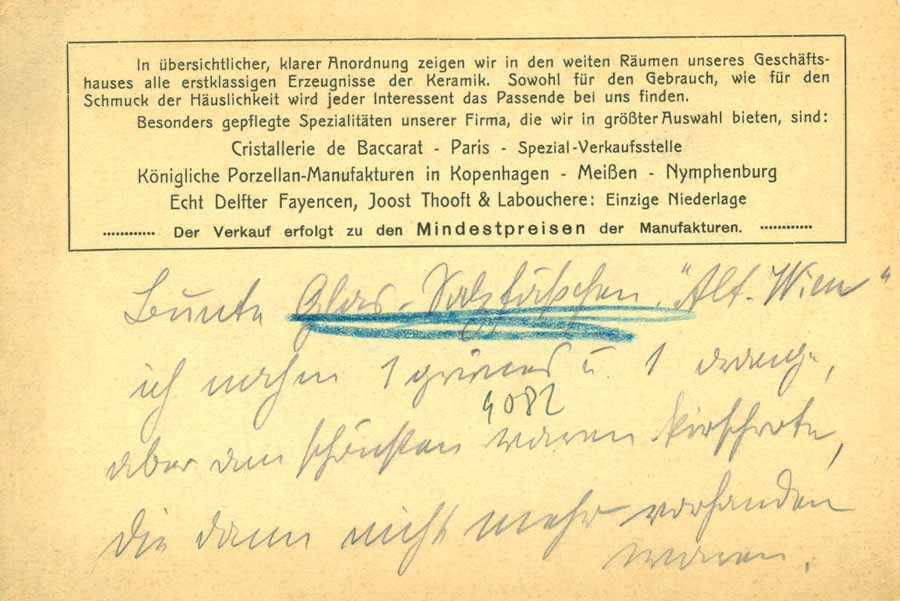 In übersichtlicher, klarer Anordnung zeigen wir in den weiten Räumen unseres Geschäfts-
hauses alle erstklassigen Erzeugnisse der Keramik. Sowohl für den Gebrauch, wie für den
Schmuck der Häuslichkeit wird jeder Interessent das Passende bei uns finden.
Besonders gepflegte Spezialitäten unserer Firma, die wir in größter Auswahl bieten, sind:
Cristallerie de Baccarat - Paris - Spezial-Verkaufsstelle
Königliche Porzellan-Manufakturen in Kopenhagen - Meißen - Nymphenburg
Echt Delfter Fayencen, Joost Thooft & Labouchere: Einzige Niederlage
Der Verkauf erfolgt zu den Mindestpreisen der Manufakturen.
Bunte Glas-Salzfäßchen, "Alt-Wien"
ich nahm 1 grünes u. 1 orange,
4082
aber am schönsten waren kirschrote,
die dann nicht mehr vorhanden
waren.